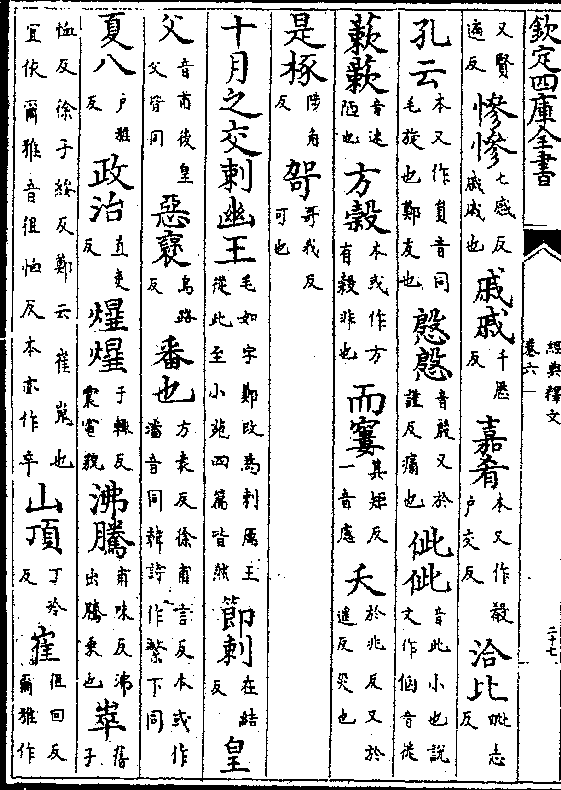 欽定四庫全書
經典釋文
卷六
二十七
又賢遍反 慘慘 七感反慼慼也 戚戚 千歷反 嘉肴 本又作殽户交反 洽比 毗志反
孔云 本又作員音同毛旋也鄭友也 慇慇 音殷又於謹反痛也 佌佌 音此小也說文作㑉音徙
蔌蔌 音速陋也 方穀 本或作方有穀非也 而窶 其矩反一音慮 夭 於兆反又於遥反災也
是椓 陟角反 哿 哥我反可也
十月之交刺幽王 毛如字鄭改為刺厲王從此至小宛四篇皆然 節刺 在結反 皇
父 音甫後皇父皆同 惡褒 烏路反 番也 方袁反徐甫言反本或作潘音同韓詩作繁下同
夏八 户雅反 政治 直吏反 爗爗 于輒反震電貌 沸騰 甫味反沸出騰乗也 崒 舊子
恤反徐子綏反鄭云崔嵬也宜依爾雅音徂恤反本亦作卒 山頂 丁泠反 崔 徂回反爾雅作